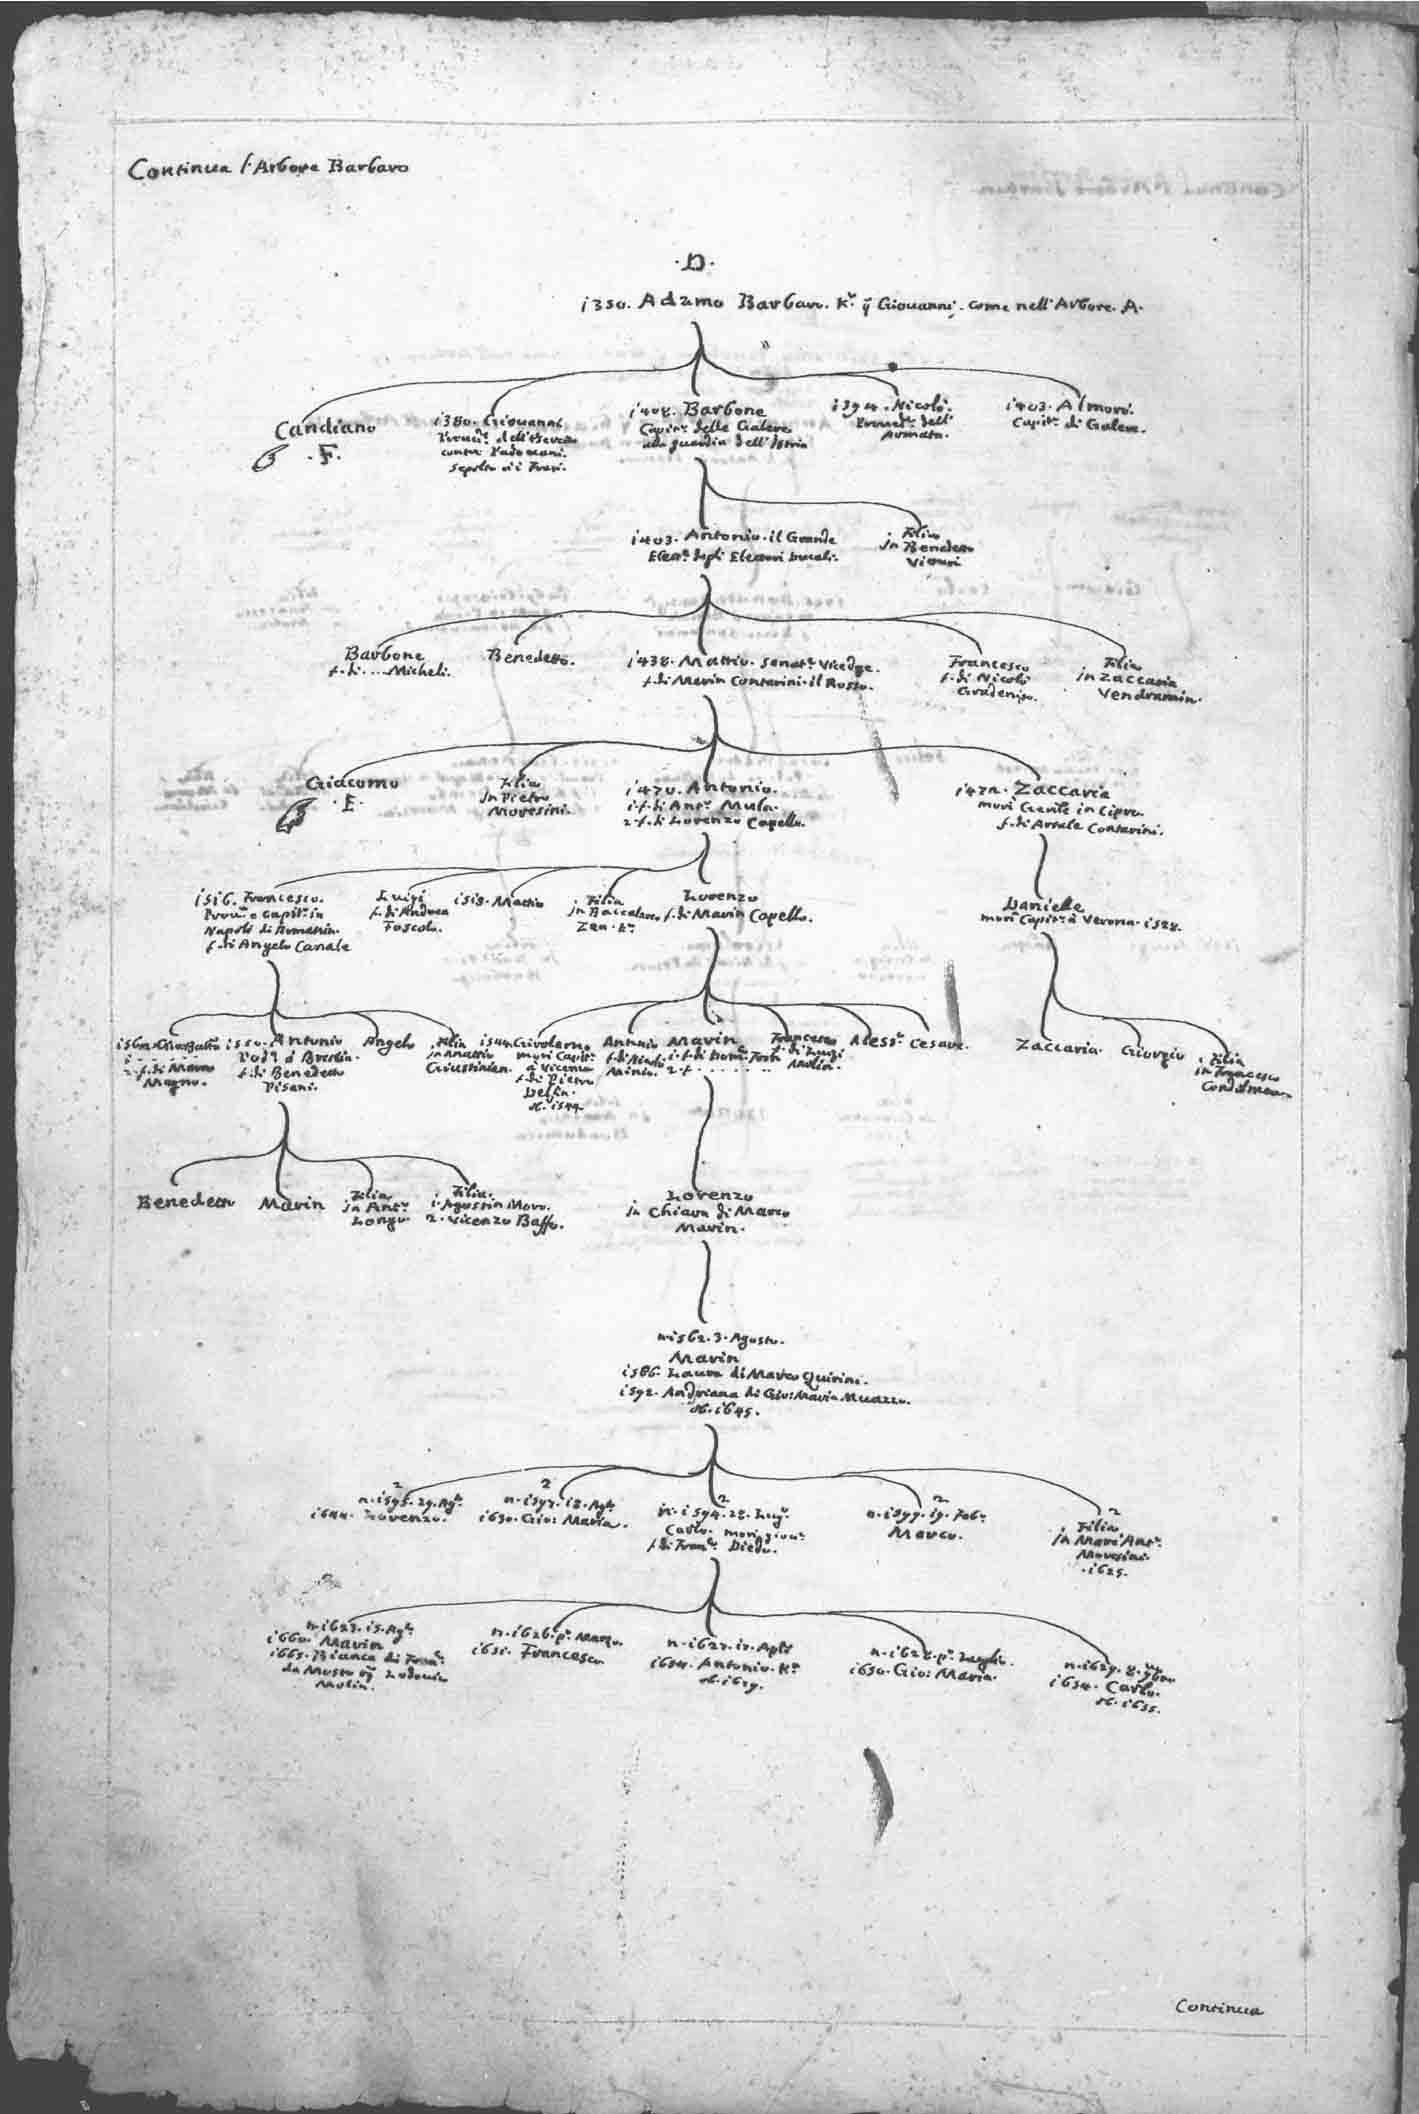 Continua l'Arbore Barbaro
.D.
1350. Adamo Barbaro. Kr. q Giovanni. come nell'Arbore. A.
Candiano
.F.
1380. Giovanni
contra Padovani.
sepolto ai Frari.
1408. Barbone
Capitº delle Galere
alla guardia dell'Istria
1394. Nicolò.
Proved.r dell'
Armata.
1403. Almorò.
Capitº di Galera.
1403. Antonio. il Grande
Elett.r degli Elettori Ducali.
Filia
in Benedetto
Vitturi
Barbone
f. di .... Micheli.
Benedetto.
1438. Mattio. Senat.r Vicedge.
f. di Marin Contarini. il Rosso.
Francesco
f. di Nicolò
Gradenigo.
Filia
in Zaccaria
Vendramin.
Giacomo
. E.
Filia
in Pietro
Moresini.
1470. Antonio.
1. f. di Ant.º Mula.
2. f. di Lorenzo Capello.
1472. Zaccaria
morì Gente in Cipro.
f. di Artale Contarini.
1516. Francesco.
Prov.r e Capitº in
Napoli di Romania.
f. di Angelo Canale
Luigi
f. di Andrea
Foscolo.
1518. Mattio
Filia
in Baccalario
Zen. Kr.
Lorenzo
f. di Marin Capello.
Daniele
morì Capitº à Verona. 1528.
Gio:Batta
2. f. di Marco
Magno.
1550. Antonio
Pod.à à Brescia.
f. di Benedetto
Pisani.
Angelo
Filia
in Mattio
Giustinian.
1544. Girolamo
morì Capitº
à Vicenza
f. di Pietro
Delfin.
ob. 1544.
Antonio
Minio.
Marin
2. f. ........
Francesco
f. di Luigi
Molin.
Aless.º
Cesare.
Zaccaria
Giorgio
Filia
in Francesco
Condulmer.
Benedetto
Marin
Filia
in Ant.º
Longo
Filia.
1. Agustin Moro.
2. Vicenzo Baffo.
Lorenzo
in Chiara di Marco
Marin.
n. 1562. 3. Agosto.
Marin
1586. Laura di Marco Quirini.
1592. Andriana di Gio: Maria Muazzo.
ob. 1645.
2
n. 1595. 29. Agº
1644. Lorenzo.
2
n. 1597. 18. Agº
1630. Gio: Maria.
2
n. 1594. 28. Lug.º
Carlo. morì giov.e
f. di Fran.co Diedo.
2
n. 1599. 19. Feb.º
Marco.
2
Filia
in Marc'Ant.º
Moresini.
. 1625.
n. 1623. 15. Agº
1660. Marin
1665. Bianca di Fran.co
da Mosto q Lodovico
Molin.
n. 1626. pº. Marzo.
1651. Francesco
n. 1627. 17. Aple
1654. Antonio. Kr.
ob. 1679.
n. 1628. pº. Luglio.
1650. Gio: Maria.
n. 1629. 8. 9bre
1654. Carlo.
ob. 1655.
Continua